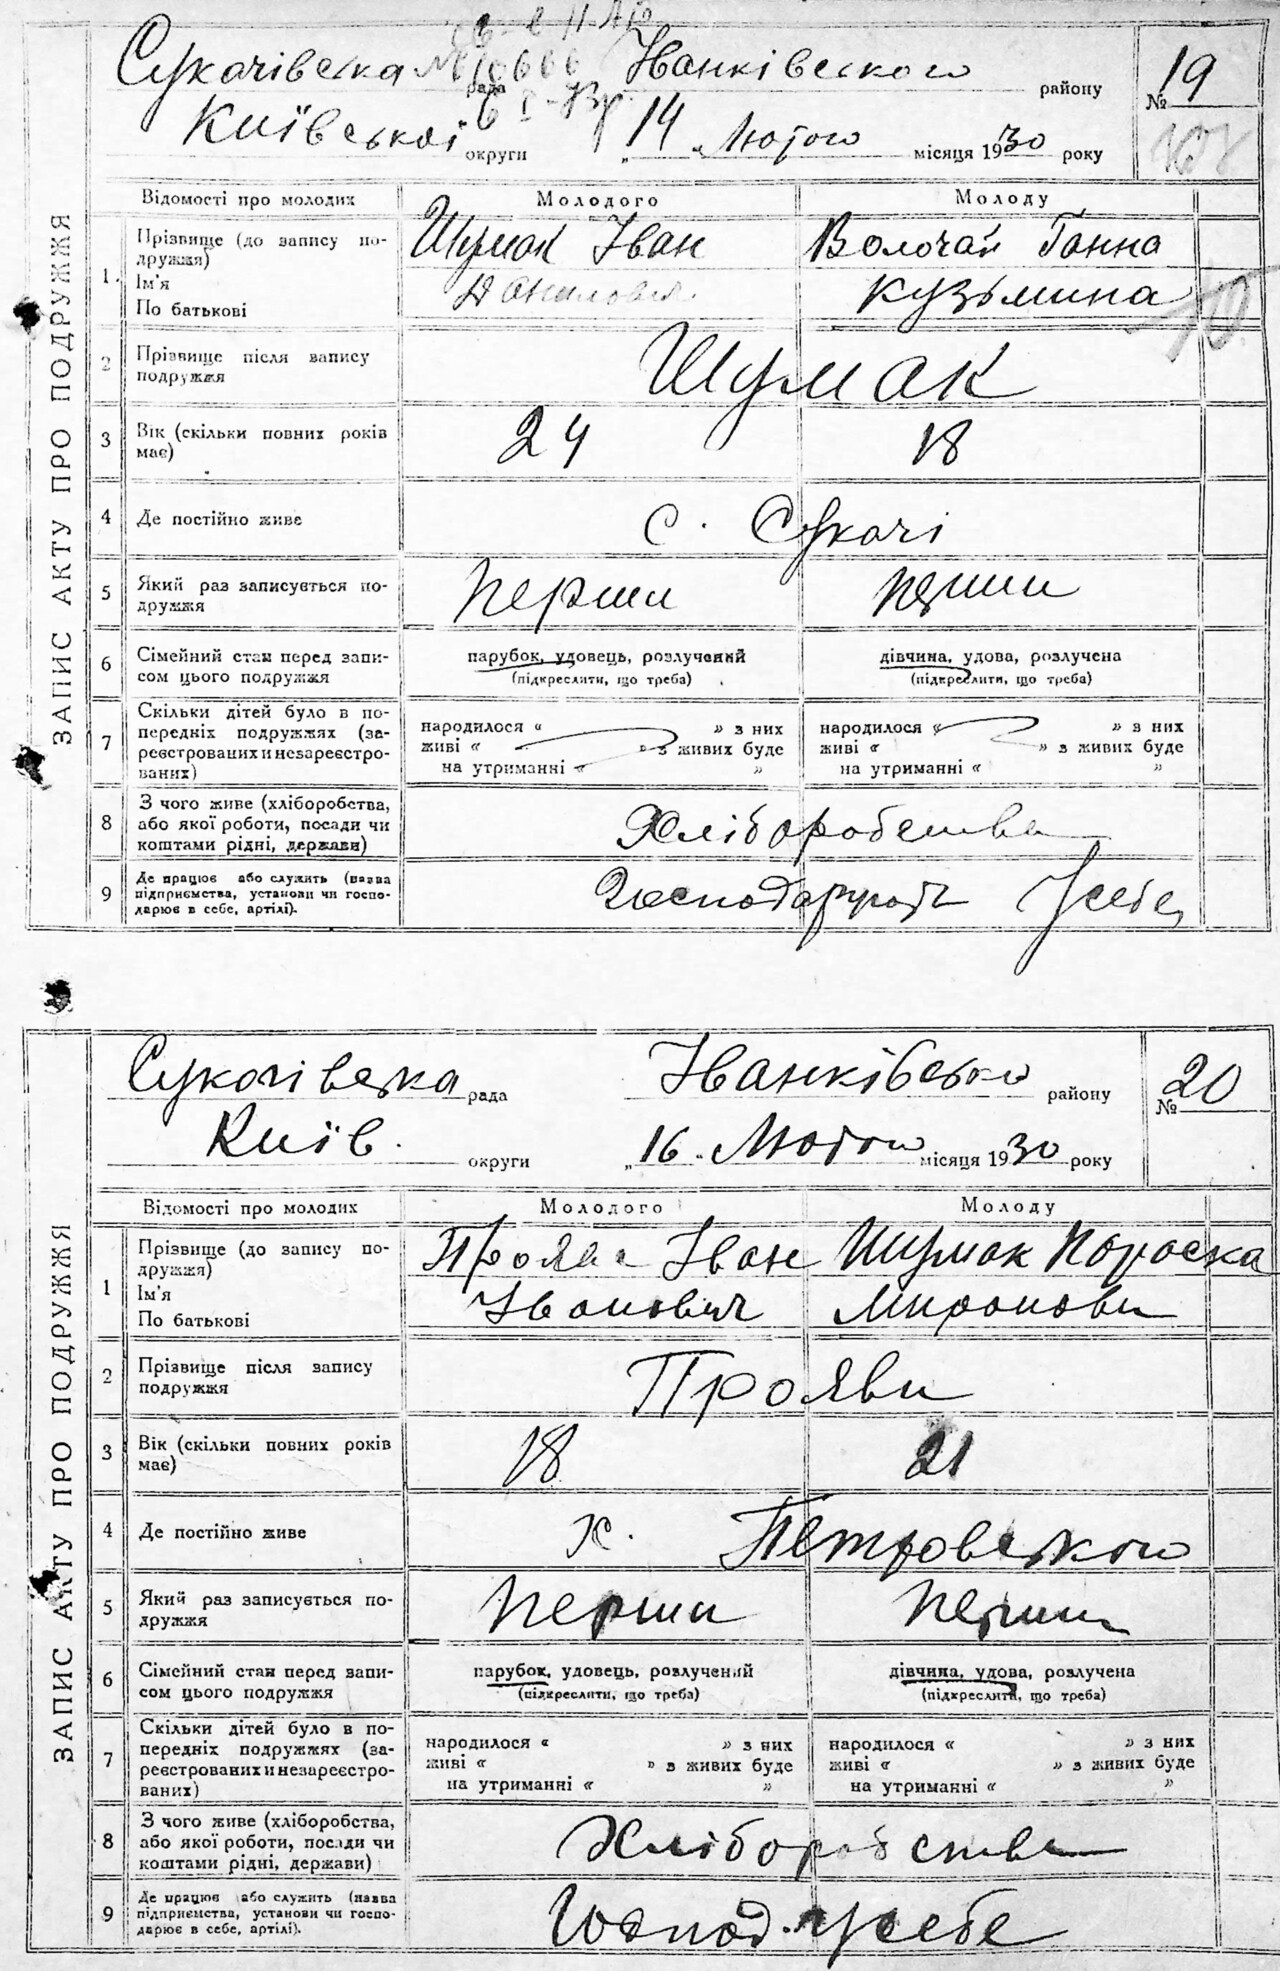 Сукачівська рада Іванківського району № 19
Київської округи „14 „ Лютого місяця 1930 року
ЗАПИС АКТУ ПРО ПОДРУЖЖЯ
Відомості про молодих Молодого Молоду
1. Прізвище (до запису по- Шумак Іван Волочай Ганна
дружжя)
Ім'я Данилович Кузьмина
По батькові
2 Прізвище після запису Шумак
подружжя
3 Вік (скільки повних років 24 18
має)
4 Де постійно живе с. Сукачі
5 Який раз записується по- перши перши
дружжя
6 Сімейний стан перед запи- парубок, удовець, розлучений дівчина, удова, розлучена
сом цього подружжя (підкреслити, що треба) (підкреслити, що треба)
7 Скільки дітей було в по- народилося « » з них народилося « » з них
передніх подружжях (за- живі « » з живих буде живі « » з живих буде
реєстрованих и незареєстро- на утриманні « » на утриманні « »
ваних)
8 З чого живе (хліборобства, Хліборобства
або якої роботи, посади чи
коштами рідні, держави)
9 Де працює або служить (назва Господарують Усебе
підприємства, установи чи госпо-
дарює в себе, артілі).
Сукачівська рада Іванківсько району № 20
Київ. округи „16 „ Лютого місяця 1930 року
ЗАПИС АКТУ ПРО ПОДРУЖЖЯ
Відомості про молодих Молодого Молоду
1 Прізвище (до запису по- Проява Іван Шумак Пороска
дружжя)
Ім'я Іванович Миронови
По батькові
2 Прізвище після запису Прояви
подружжя
3 Вік (скільки повних років 18 21
має)
4 Де постійно живе х. Петровського
5 Який раз записується по- перши перши
дружжя
6 Сімейний стан перед запи- парубок, удовець, розлучений дівчина, удова, розлучена
сом цього подружжя (підкреслити, що треба) (підкреслити, що треба)
7 Скільки дітей було в по- народилося « » з них народилося « » з них
передніх подружжях (за- живі « » з живих буде живі « » з живих буде
реєстрованих и незареєстро- на утриманні « » на утриманні « »
ваних)
8 З чого живе (хліборобства, Хліборобства
або якої роботи, посади чи
коштами рідні, держави)
9 Де працює або служить (назва Господ. усебе
підприємства, установи чи госпо-
дарює в себе, артілі).